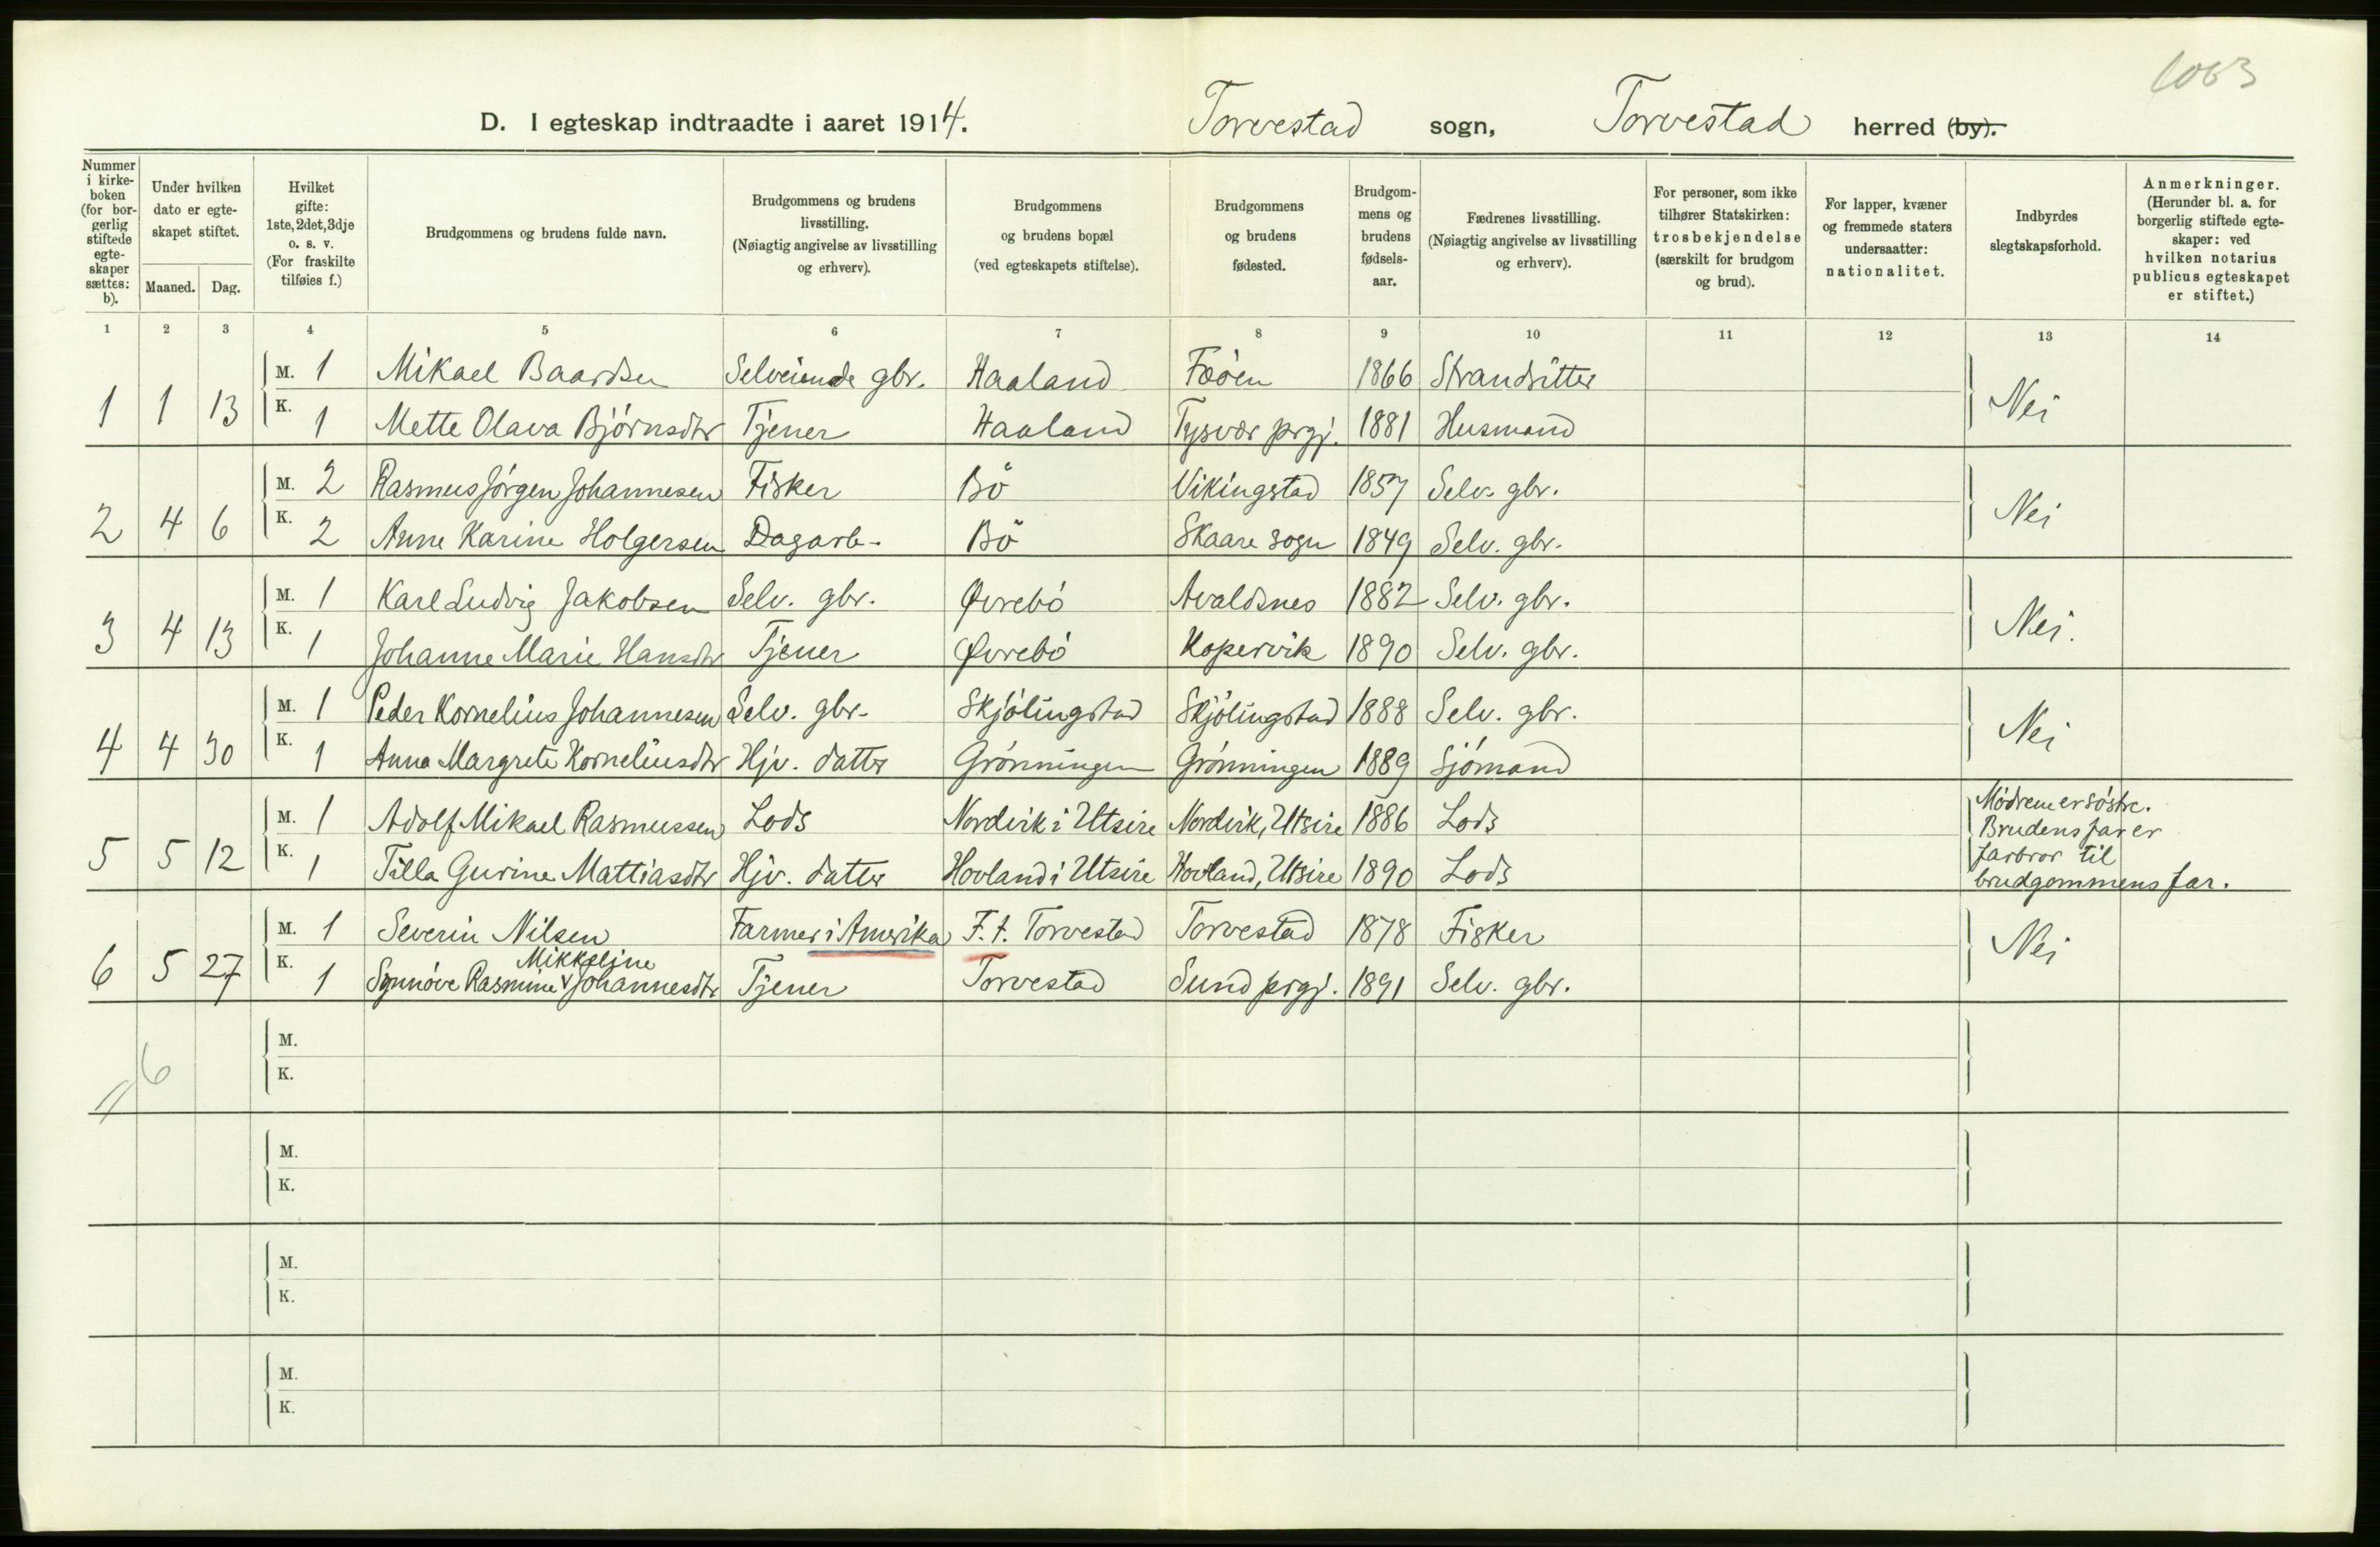 1063
D. I egteskap indtraadte i aaret 1914. Torvestad sogn, Torvestad herred (by).
Nummer i kirkeboken (for borgerlig stiftede egteskaper sættes: b).
Under hvilken dato er egteskapet stiftet.
Maaned. Dag.
Hvilket gifte: 1ste, 2det, 3dje o. s. v. (For fraskilte tilføies f.)
Brudgommens og brudens fulde navn.
Brudgommens og brudens livsstilling. (Nøiagtig angivelse av livsstilling og erhverv).
Brudgommens og brudens bopæl (ved egteskapets stiftelse).
Brudgommens og brudens fødested.
Brudgommens og brudens fødselsaar.
Fædrenes livsstilling. (Nøiagtig angivelse av livsstilling og erhverv).
For personer, som ikke tilhører Statskirken: trosbekjendelse (særskilt for brudgom og brud).
For lapper, kvæner og fremmede staters undersaatter: nationalitet.
Indbyrdes slegtskapsforhold.
Anmerkninger. (Herunder bl. a. for borgerlig stiftede egteskaper: ved hvilken notarius publicus egteskapet er stiftet.)
1 2 3 4 5 6 7 8 9 10 11 12 13 14
M. 1 Mikael Baardsen Selveiende gbr. Haaland Føöen 1866 Strandsitter
1 1 13 K. 1 Mette Olava Björnsdtr Tjener Haaland Tysvær prgj. 1881 Husmand Nei
M. 2 Rasmus Jörgen Johannesen Fisker Bö Vikingstad 1857 Selv. gbr.
2 4 6 K. 2 Anne Karine Holgersen Dagarb. Bö Skaare sogn 1849 Selv. gbr. Nei
M. 1 Karl Ludvig Jakobsen Selv. gbr. Øvrebö Avaldsnes 1882 Selv. gbr.
3 4 13 K. 1 Johanne Marie Hansdtr Tjener Øvrebö Kopervik 1890 Selv. gbr. Nei.
M. 1 Peder Kornelius Johannesen Selv. gbr. Skjölingstad Skjölingstad 1888 Selv. gbr.
4 4 30 K. 1 Anna Margrete Korneliusdtr Hjv. datter Grönningen Grönningen 1889 Sjömand Nei
M. 1 Adolf Mikael Rasmussen Lods Nordvik i Utsire Nordvik, Utsire 1886 Lods Mödrene er söstre.
Brudens far er
farbror til
5 5 12 K. 1 Tilla Gurine Mattiasdtr Hjv. datter Hovland i Utsire Hovland, Utsire 1890 Lods brudgommens far.
M. 1 Severin Nilsen Farmer i Amerika F. t. Torvestad Torvestad 1878 Fisker
Mikkeline
6 5 27 K. 1 Synnöve Rasmine v Johannesdtr Tjener Torvestad Sund prgj. 1891 Selv. gbr. Nei
M.
6
K.
M.
K.
M.
K.
M.
K.